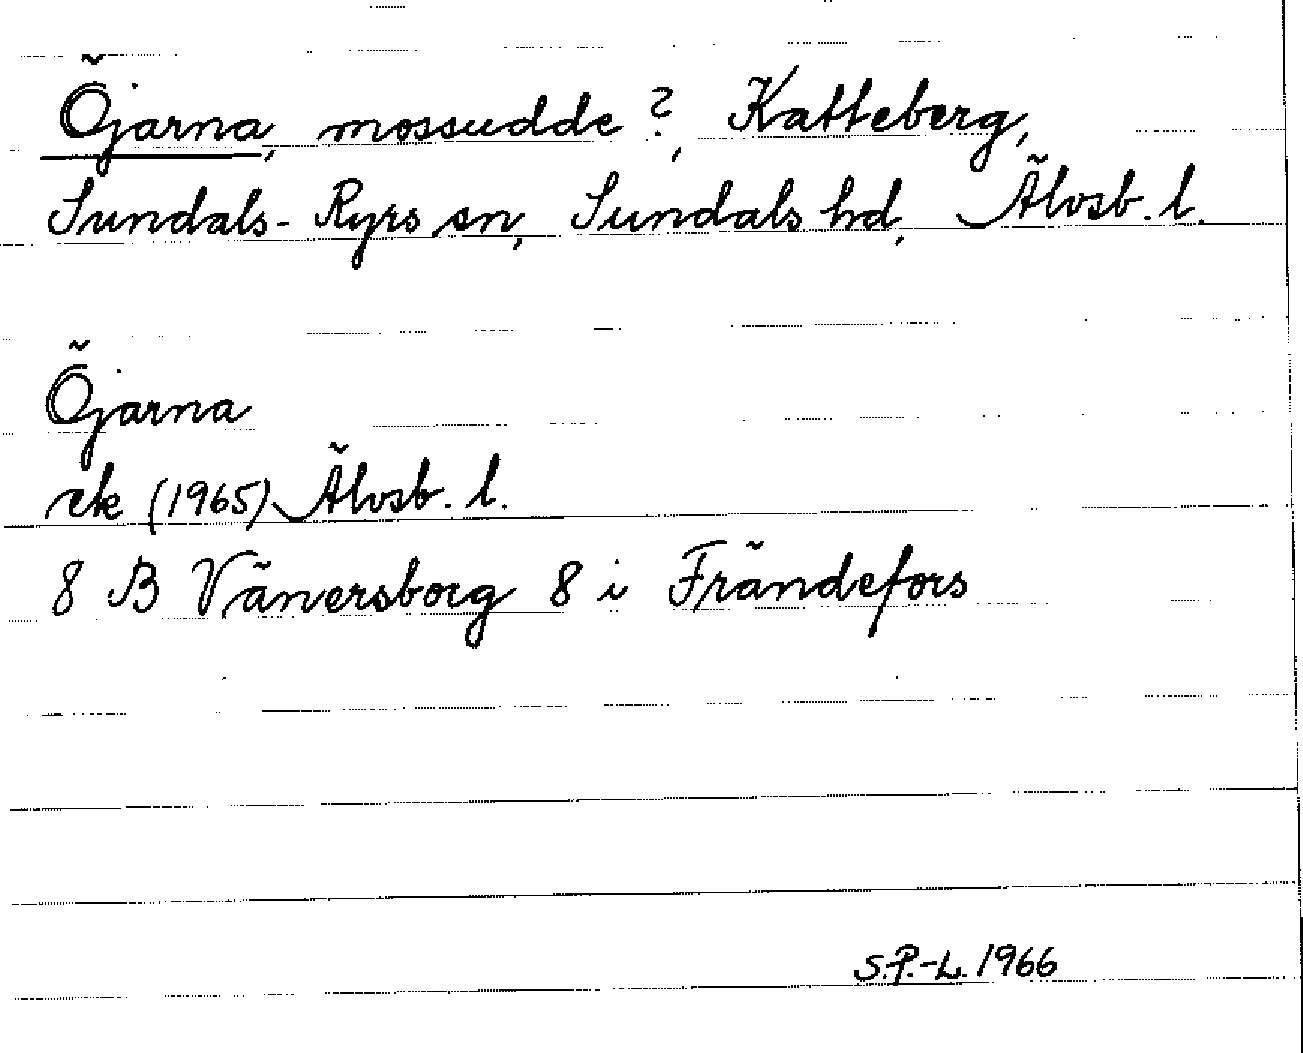 Öjarna, mossudde?, Katteberg,
Sundals-Ryrs sn, Sundals hd, Älvsb. l.
Öjarna
ek (1965) Älvsb. l.
8 B Vänersborg 8 i Frändefors
S.P.-L. 1966